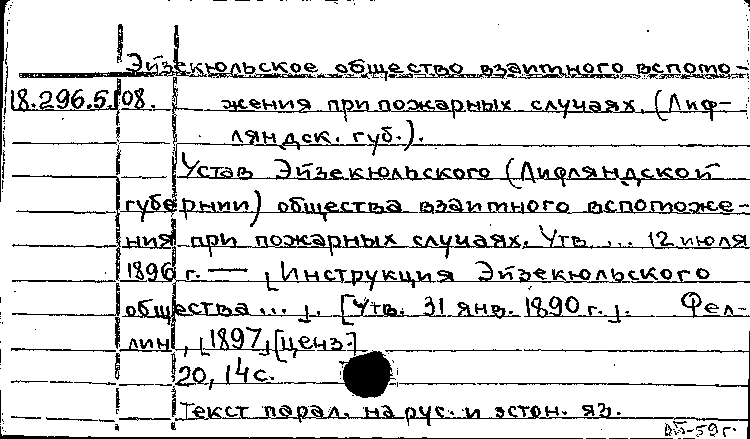 Эйзекюльское общество взаимного вспомо-
18.296.5.108. жения при пожарных случаях. (Лиф-
ляндск. губ.).
Устав Эйзекюльского (Лифляндской
губернии) общества взаимного вспоможе-
ния при пожарных случаях. Утв. ... 12 июля
1896 г. — [Инструкция Эйзекюльского
общества ...]. [Утв. 31 янв. 1890 г.]. Фел-
лин, [1897] [ценз.]
20, 14 с.
Текст парал. на рус. и эстон. яз.